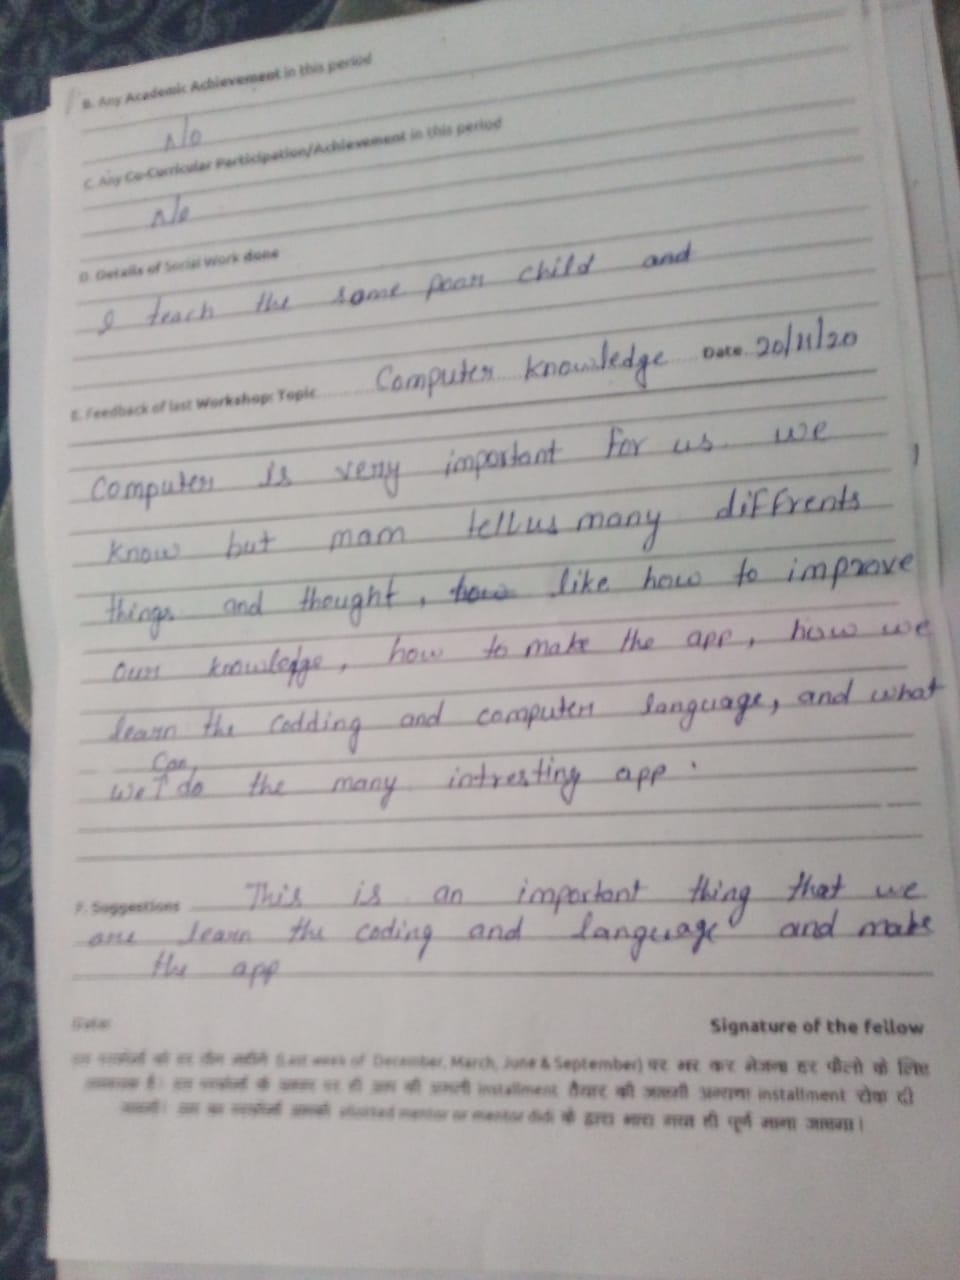 B. Any Academic Achievement in this period
No
C. Any Co-Curricular Participation/Achievement in this period
No
D. Details of Social Work done
I teach the some poor child and
E. Feedback of last Workshop: Topic Computer knowledge Date 20/11/20
Computer is very important for us. we
know but mam tell us many diffrents
things and thought, how like how to improve
our knowledge, how to make the app, how we
learn the Codding and computer language, and what
can
we do the many intresting app.
F. Suggestions This is an important thing that we
are learn the coding and language and make
the app
Date:
Signature of the fellow
(Last week of December, March, June & September) पर भर कर भेजना हर फैलो के लिए
installment तैयार की जाएगी अन्यथा installment रोक दी
allotted mentor or mentor didi के द्वारा ही पूर्ण माना जाएगा।